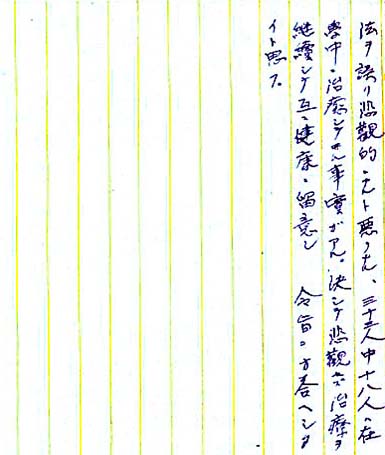 法ヲ誤リ悲観的ニナルト悪クナル、三十三人中十八人ハ在
学中ニ治癒シテヰル事実ガアル。決シテ悲観セズ治療ヲ
継續シテ互ニ健康ニ留意シ 令旨ニ方答ヘシタ
イト思フ